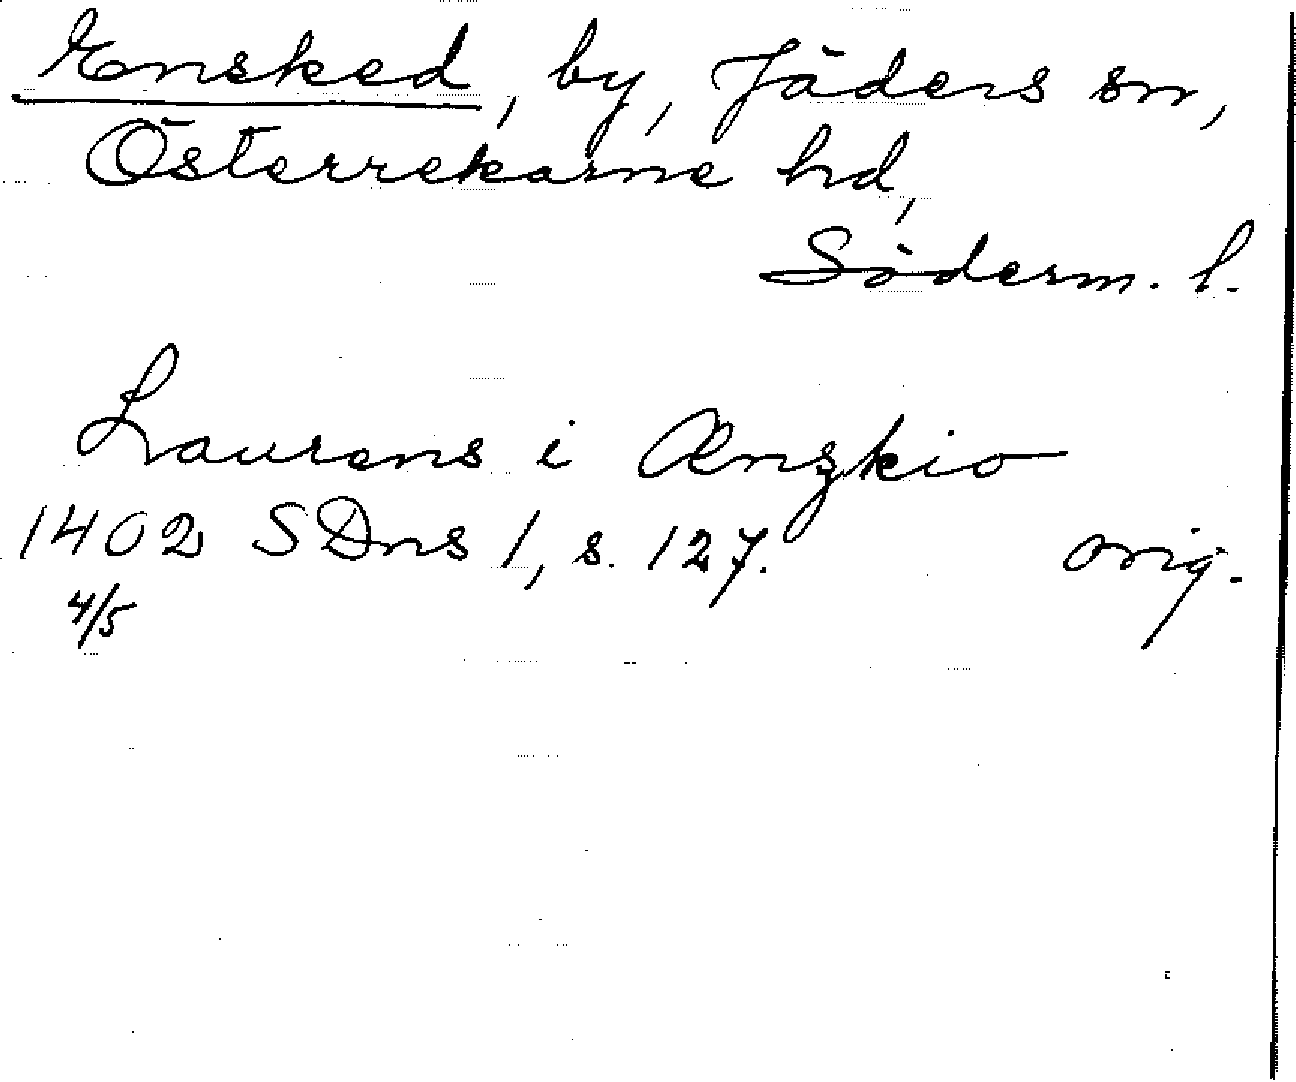 Ensked, by, Jäders sn,
Österrekarne hd,
Söderm. l.
Laurens i Ænszkio
1402 SDns 1, s. 127. orig.
4/5